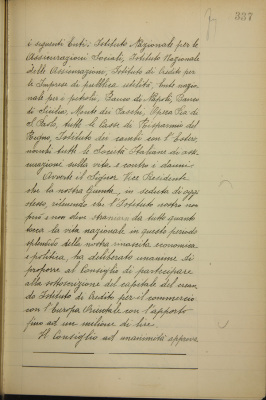 337
i seguenti Enti: Istituto Nazionale per le
Assicurazioni Sociali, Istituto Nazionale
delle Assicurazioni, Istituto di Credito per
le Imprese di pubblica utilità, Ente nazio-
nale per i petroli, Banco di Napoli, Banco
di Sicilia, Monte dei Paschi, Opera Pia di
S. Paolo, tutte le Casse di Risparmio del
Regno, Istituto dei cambi con l'Estero
nonchè tutte le Società Italiane di assi-
curazione sulla vita e contro i danni.
Avverte il Signor Vice Presidente
che la nostra Giunta, in seduta di oggi
stesso, ritenendo che l'Istituto nostro non
può e non deve straniarsi da tutte quante
tocca la vita nazionale in questo periodo
splendido della nostra rinascita economica
e politica, ha deliberato unanime di
proporre al Consiglio di partecipare
alla sottoscrizione del capitale del crean-
do Istituto di Credito per il commercio
con l'Europa Orientale con l'apporto
fino ad un milione di lire.
Il Consiglio ad unanimità approva.